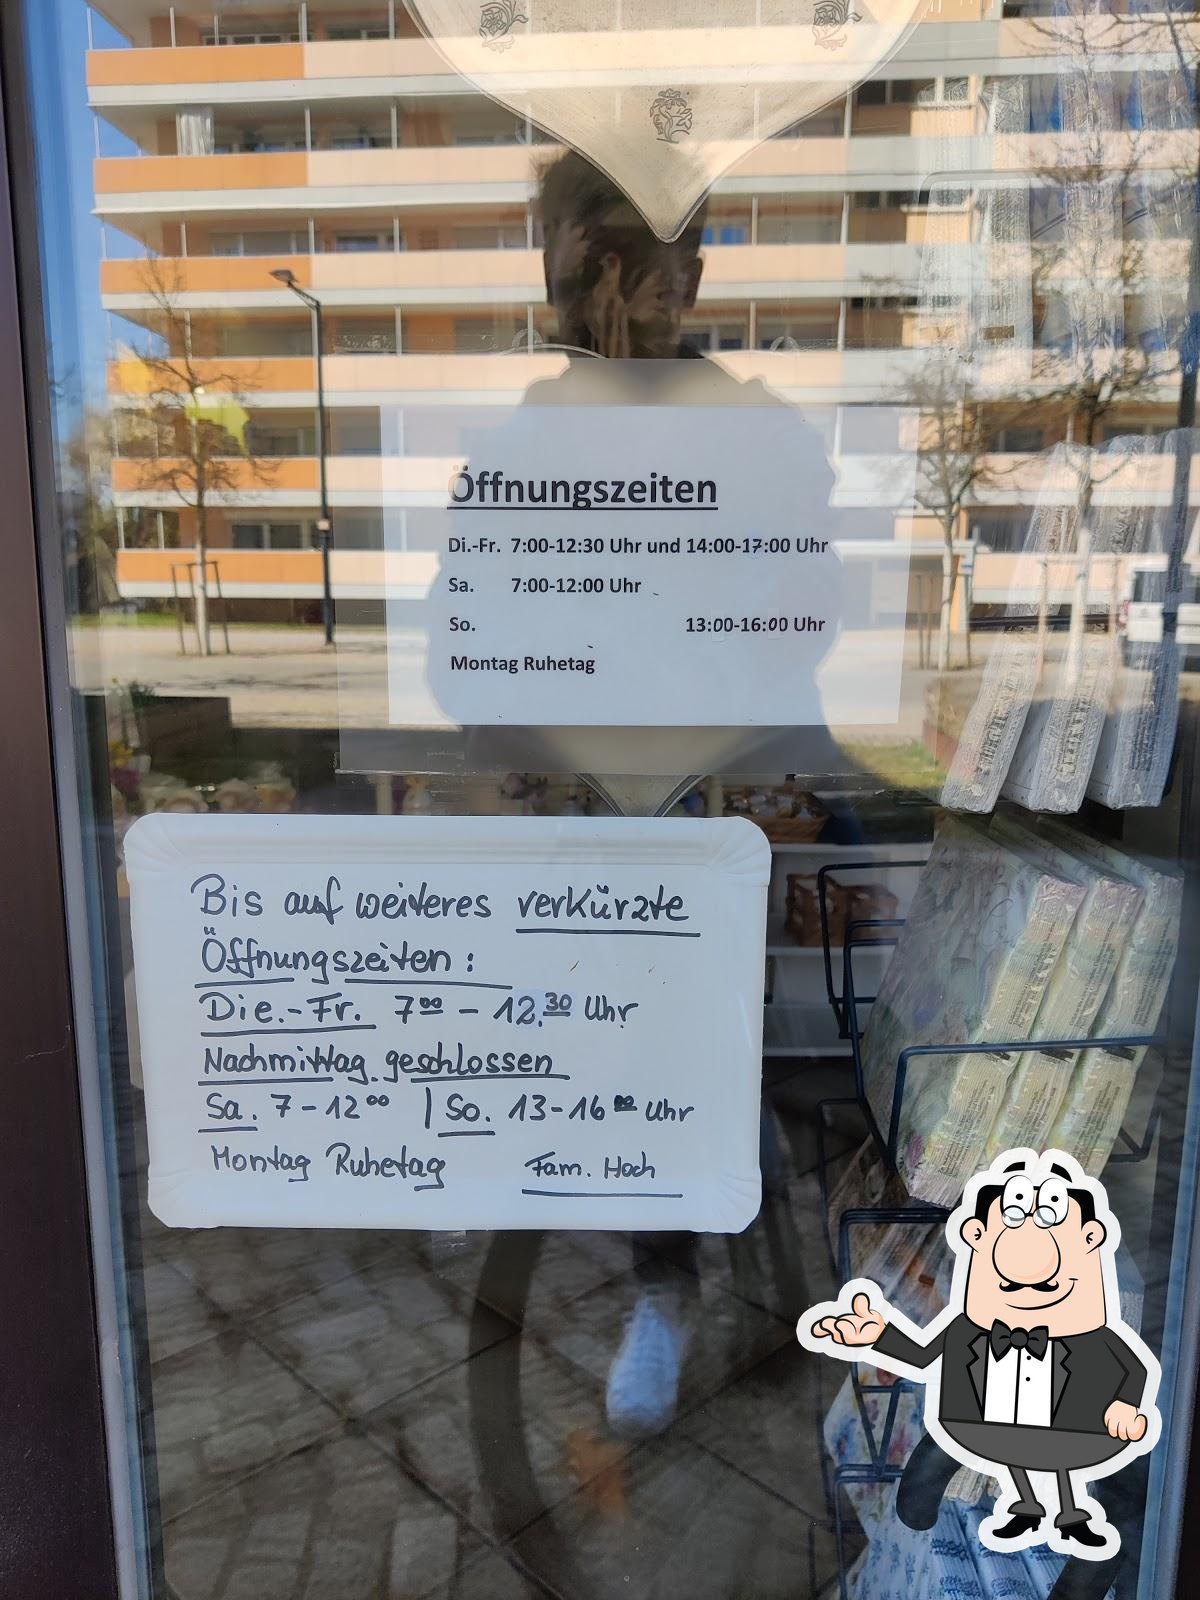 Öffnungszeiten
Di.-Fr. 7:00-12:30 Uhr und 14:00-17:00 Uhr
Sa. 7:00-12:00 Uhr
So. 13:00-16:00 Uhr
Montag Ruhetag
Bis auf weiteres verkürzte
Öffnungszeiten:
Die.-Fr. 7⁰⁰ - 12.³⁰ Uhr
Nachmittag geschlossen
Sa. 7-12⁰⁰ | So. 13-16⁰⁰ Uhr
Montag Ruhetag Fam. Hoch